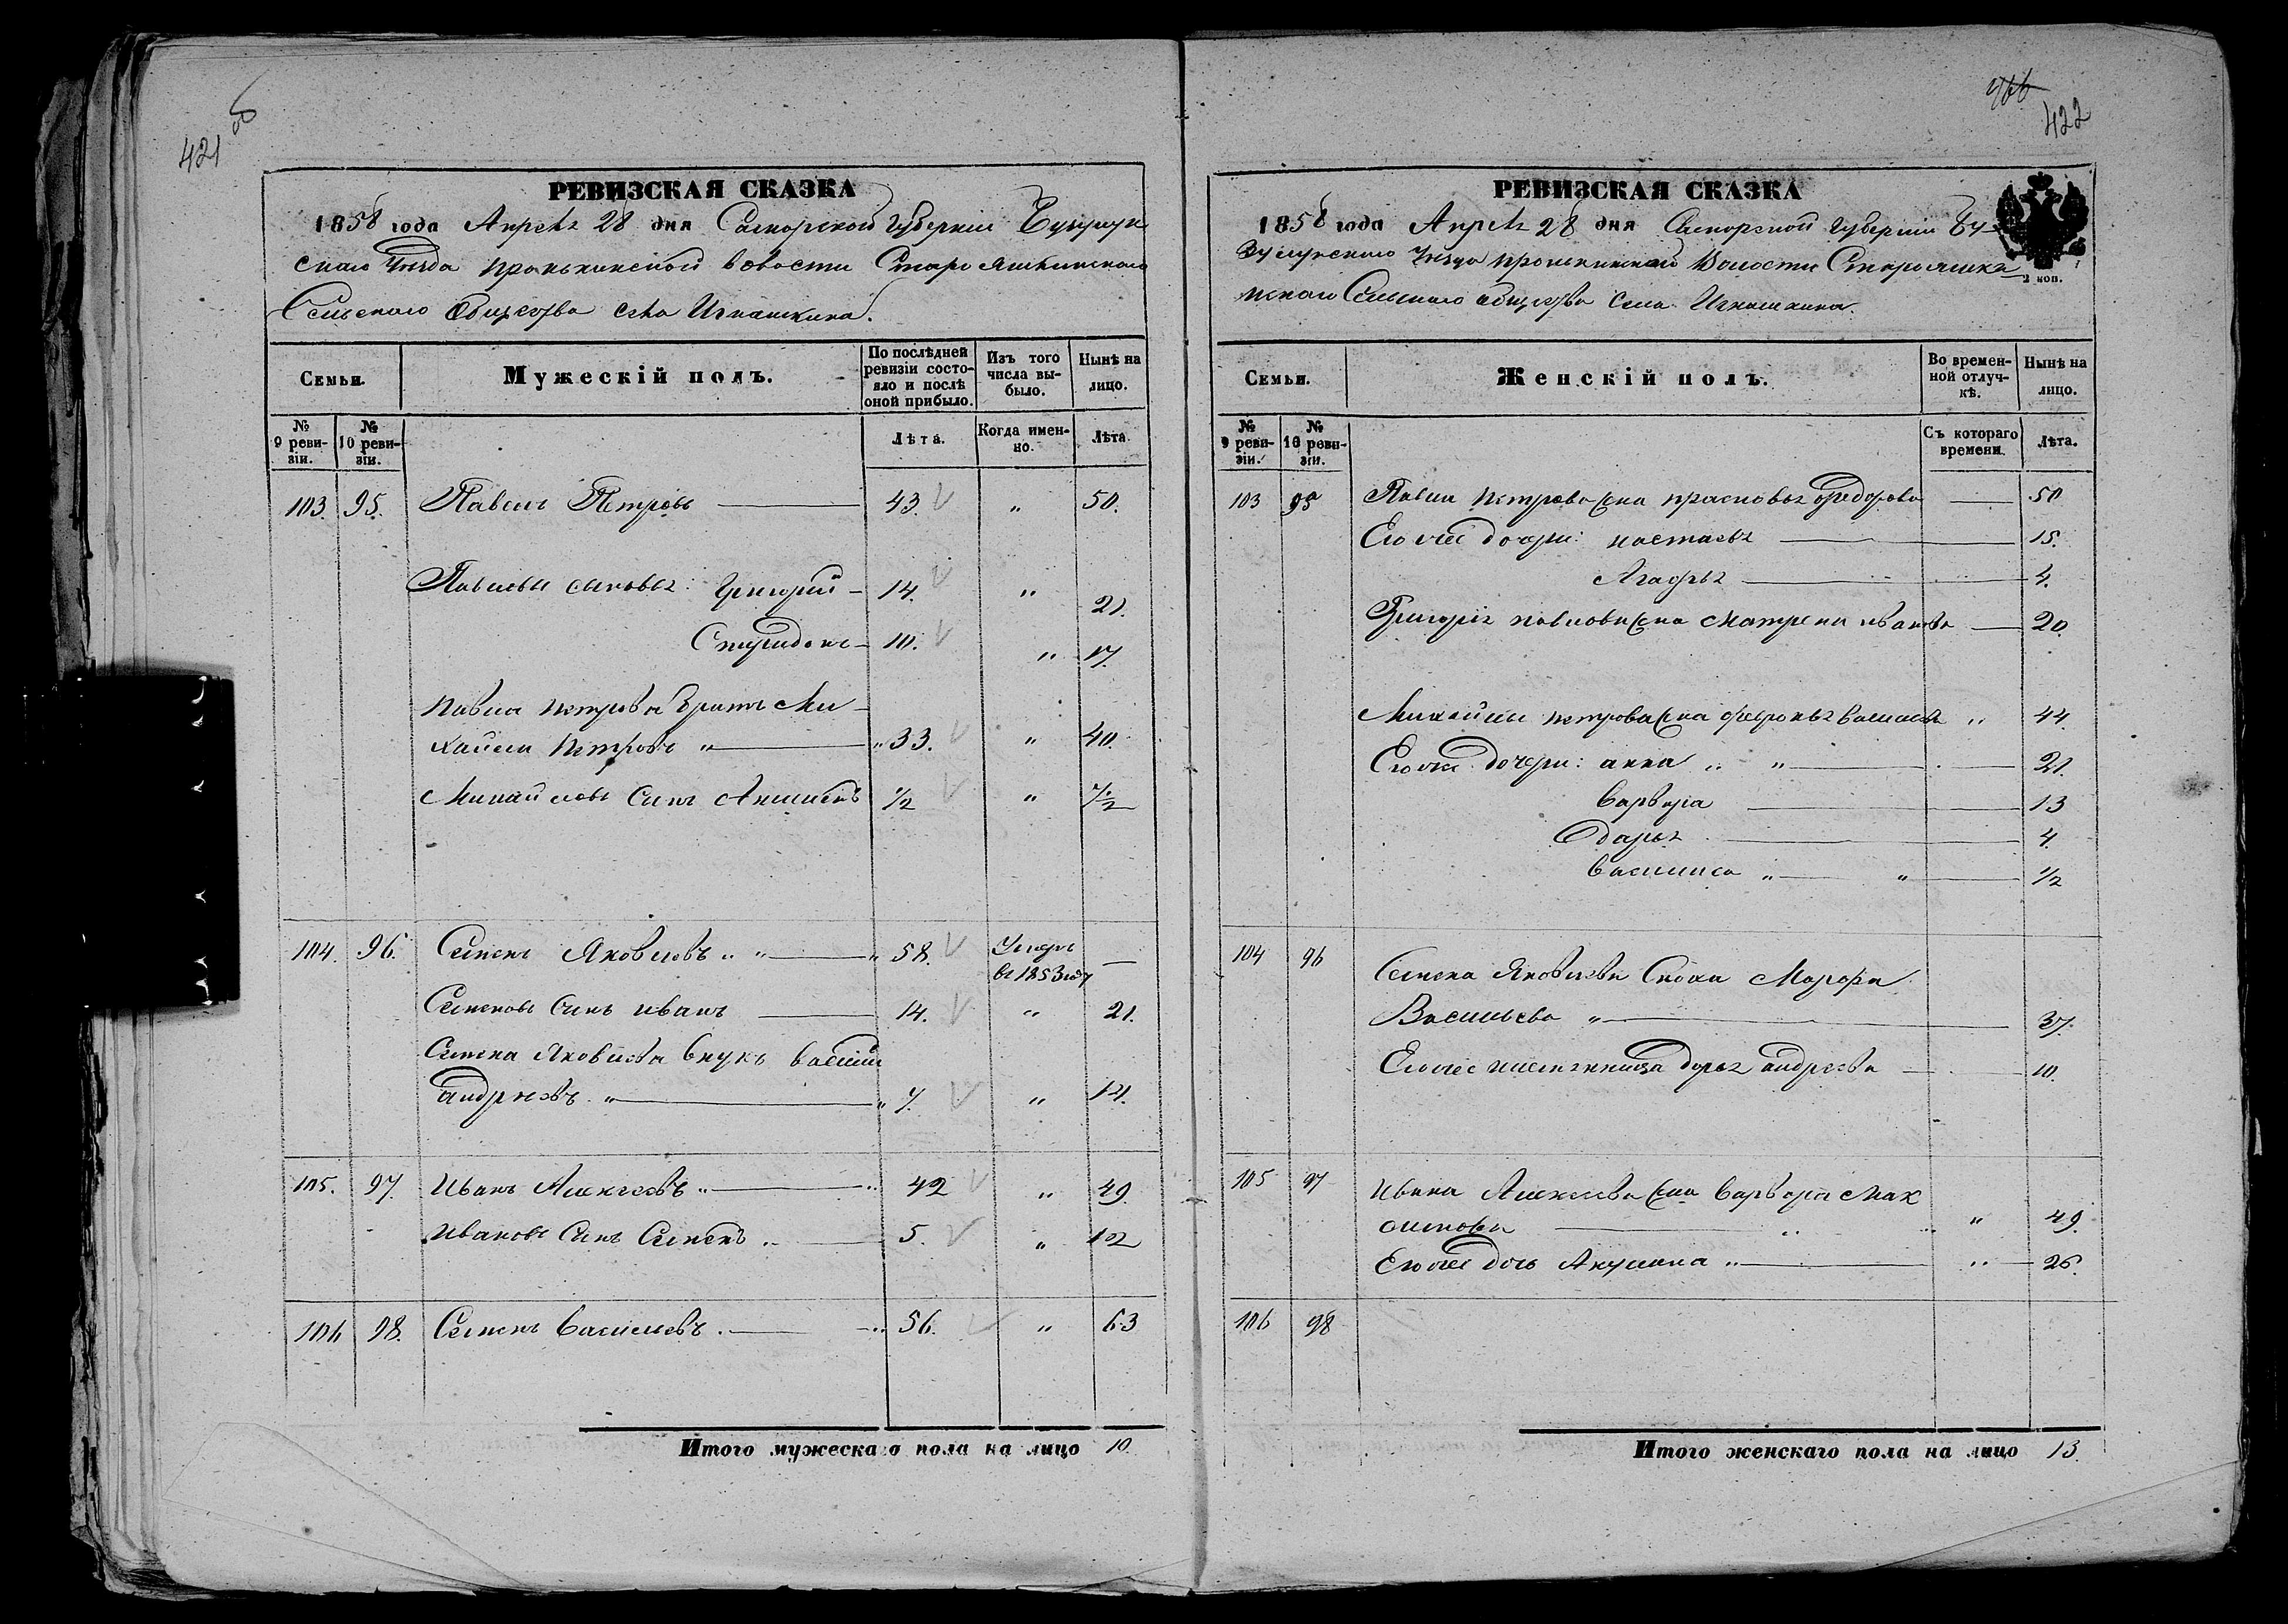 421 об
РЕВИЗСКАЯ СКАЗКА
1858 года Апреля 28 дня Самарской Губерніи Бузулук
скаго Уезда Пронькинской волости Старо Яшкинскаго
Сельскаго Общества села Игнашкина.
Семьи.
Мужескій полъ.
По послѣдней ревизіи состояло и послѣ оной прибыло.
Изъ того числа выбыло.
Нынѣ на лицо.
№ 9 ревизіи.
№ 10 ревизіи.
Лѣта.
Когда именно.
Лѣта
103. 95. Павелъ Петровъ 43. " 50.
Павловы сыновья: Григорій 14. " 21.
Спиридонъ 10. " 17.
Павла Петрова братъ Ми
хайла Петровъ " " 33. " 40.
Михайловъ сынъ Алексей ½ " 7½
104. 96. Семенъ Яковлевъ " " " 58. Умеръ —
въ 1853 году
Семеновъ сынъ иванъ 14. " 21.
Семена Яковлева внукъ василій
андреевъ " " 7. " 14.
105. 97. Иванъ Алексеевъ " " 42 " 49.
Ивановъ сынъ Семенъ 5. " 12
106 98. Семенъ Васильевъ " 56. " 63
Итого мужескаго пола на лицо 10.
466
422
РЕВИЗСКАЯ СКАЗКА
1858 года Апреля 28 дня Самарской губерніи Бу
зулукскаго Уезда Пронькинской Волости Старояшки
нскаго Сельскаго общества села Игнашкина.
2 коп.
Семьи.
Женскій полъ.
Во временной отлучкѣ.
Нынѣ на лицо.
№ 9 ревизіи.
№ 10 ревизіи.
Съ котораго времени.
Лѣта.
103 95 Павла Петрова жена прасковья федорова 50
Его же дочери: настасья 15.
Агафья 4.
Григорія павлова жена Матрена иванова 20.
Михайлы петрова жена февронья васильева " 44
Его же дочери: анна " " 21.
Варвара 13
Дарья 4
Василиса " " ½
104 96
Семена Яковлева сноха Марфа
Васильева " 37.
Его же племянница дарья андреева 10.
105 97 Ивана Алексеева жена Варвара Мак
симова " 49.
Его же дочь Акулина " " 26.
106 98
Итого женскаго пола на лицо 13.